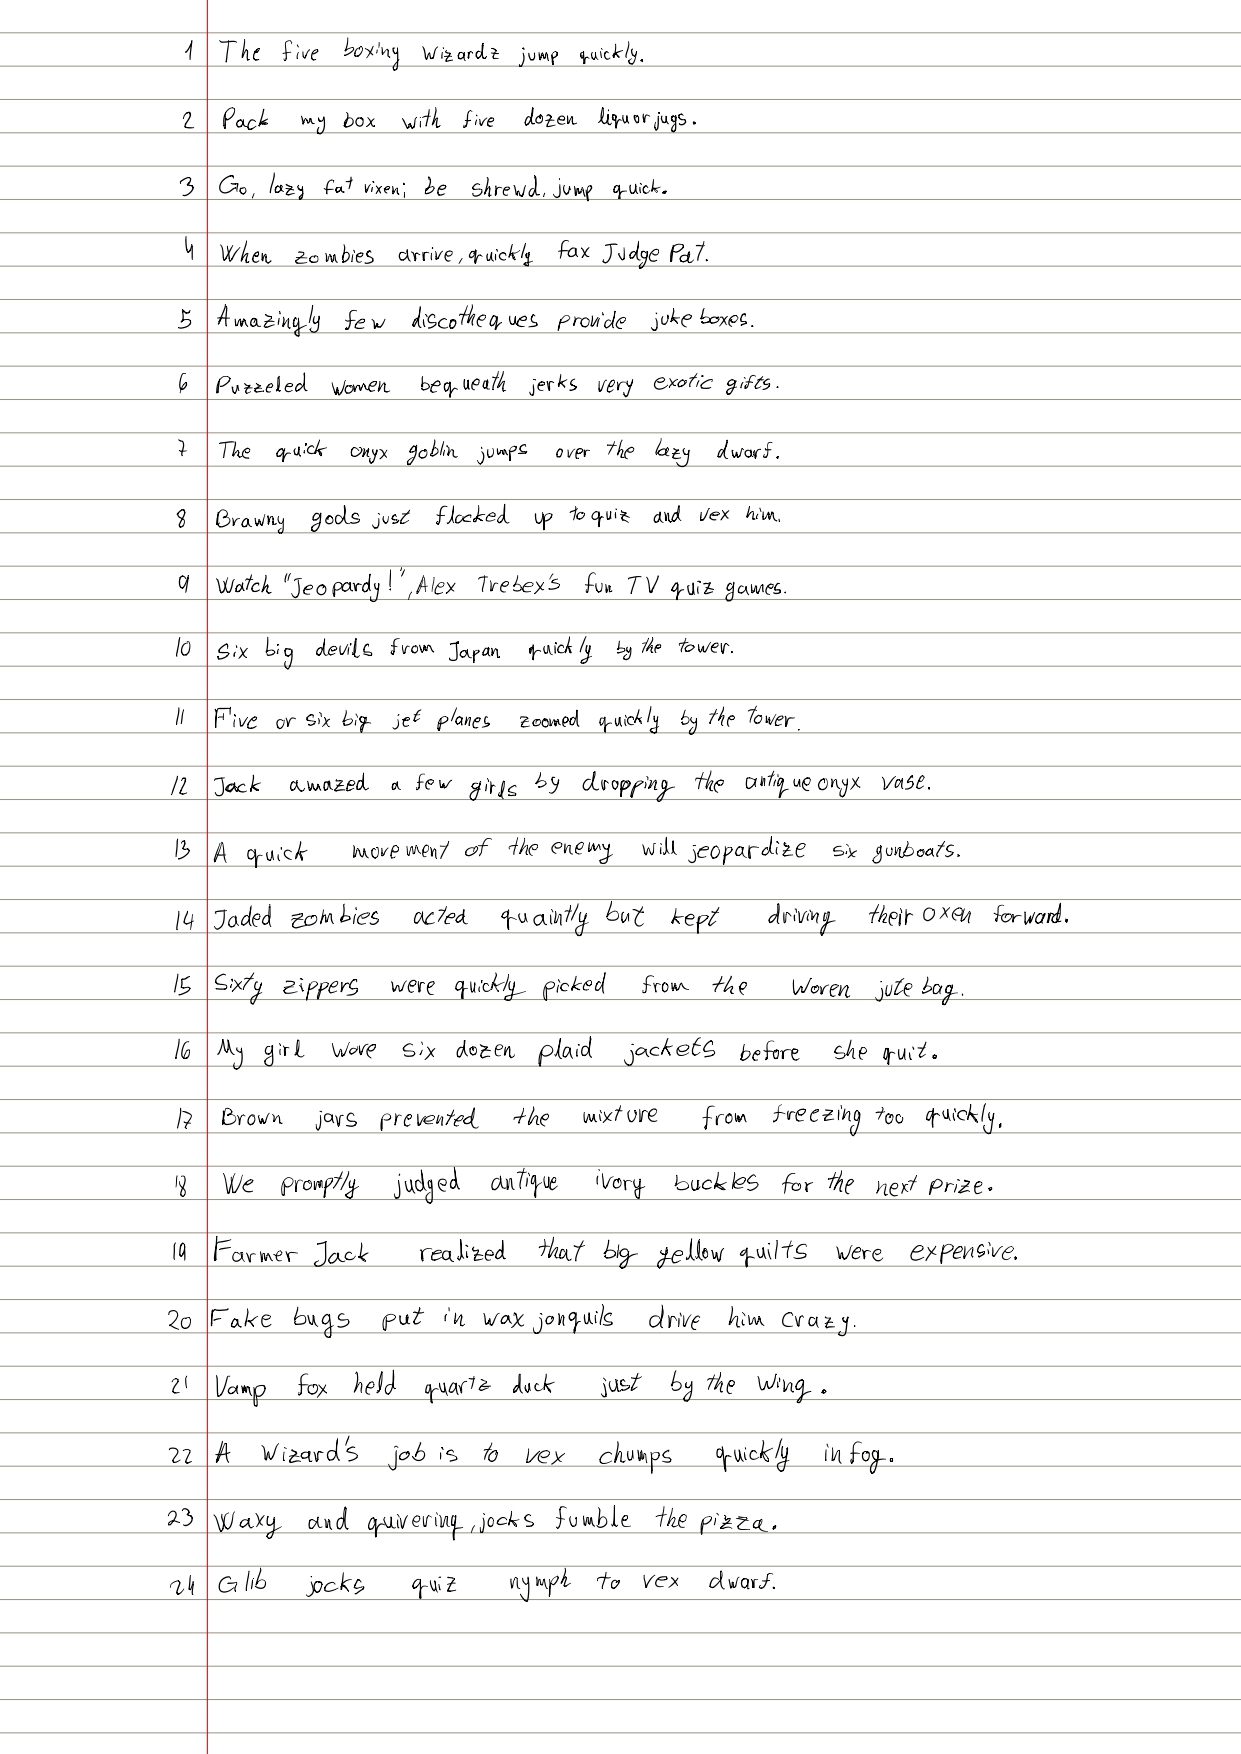 1 The five boxing wizardz jump quickly.
2 Pack my box with five dozen liquor jugs.
3 Go, lazy fat vixen; be shrewd, jump quick.
4 When zombies arrive, quickly fax Judge Pat.
5 Amazingly few discotheques provide jukeboxes.
6 Puzzeled women bequeath jerks very exotic gifts.
7 The quick onyx goblin jumps over the lazy dwarf.
8 Brawny gods just flocked up to quiz and vex him.
9 Watch "Jeopardy!", Alex Trebex's fun TV quiz games.
10 Six big devils from Japan quickly by the tower.
11 Five or six big jet planes zoomed quickly by the tower.
12 Jack amazed a few girls by dropping the antique onyx vase.
13 A quick movement of the enemy will jeopardize six gunboats.
14 Jaded zombies acted quaintly but kept driving their oxen forward.
15 Sixty zippers were quickly picked from the woven jute bag.
16 My girl wove six dozen plaid jackets before she quit.
17 Brown jars prevented the mixture from freezing too quickly.
18 We promptly judged antique ivory buckles for the next prize.
19 Farmer Jack realized that big yellow quilts were expensive.
20 Fake bugs put in wax jonquils drive him crazy.
21 Vamp fox held quartz duck just by the wing.
22 A wizard's job is to vex chumps quickly in fog.
23 Waxy and quivering, jocks fumble the pizza.
24 Glib jocks quiz nymph to vex dwarf.